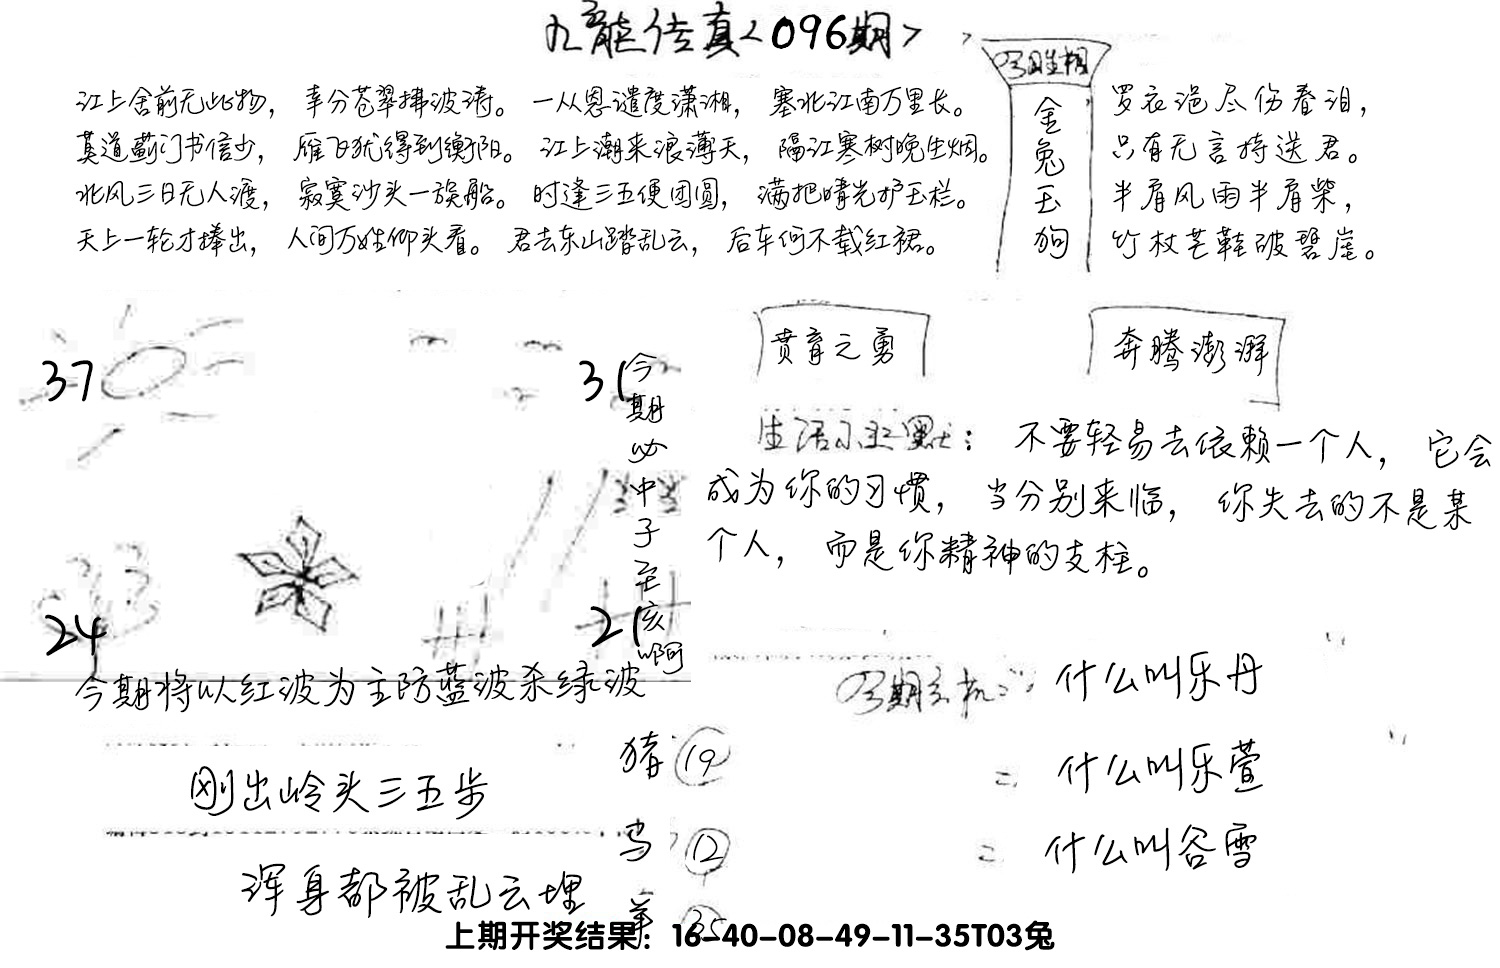 九龙传真<096期>
江上舍前无此物，幸分苍翠拂波涛。一从恩谴度潇湘，塞北江南万里长。
莫道蓟门书信少，雁飞犹得到衡阳。江上潮来浪薄天，隔江寒树晚生烟。
北风三日无人渡，寂寞沙头一簇船。时逢三五便团圆，满把晴光护玉栏。
天上一轮才捧出，人间万姓仰头看。君去东山踏乱云，后车何不载红裙。
金兔玉狗
罗衣浥尽伤春泪，
只有无言持送君。
半肩风雨半肩柴，
竹杖芒鞋破碧崖。
37
31
24
21
今期必中子至亥啊
今期将以红波为主防蓝波杀绿波
贲育之勇
奔腾澎湃
生活小幽默：不要轻易去依赖一个人，它会
成为你的习惯，当分别来临，你失去的不是某
个人，而是你精神的支柱。
今期玄机二：什么叫乐丹
二 什么叫乐萱
二 什么叫谷雪
刚出岭头三五步
浑身都被乱云埋
猪 19
鸡 12
羊 35
上期开奖结果：16-40-08-49-11-35T03兔